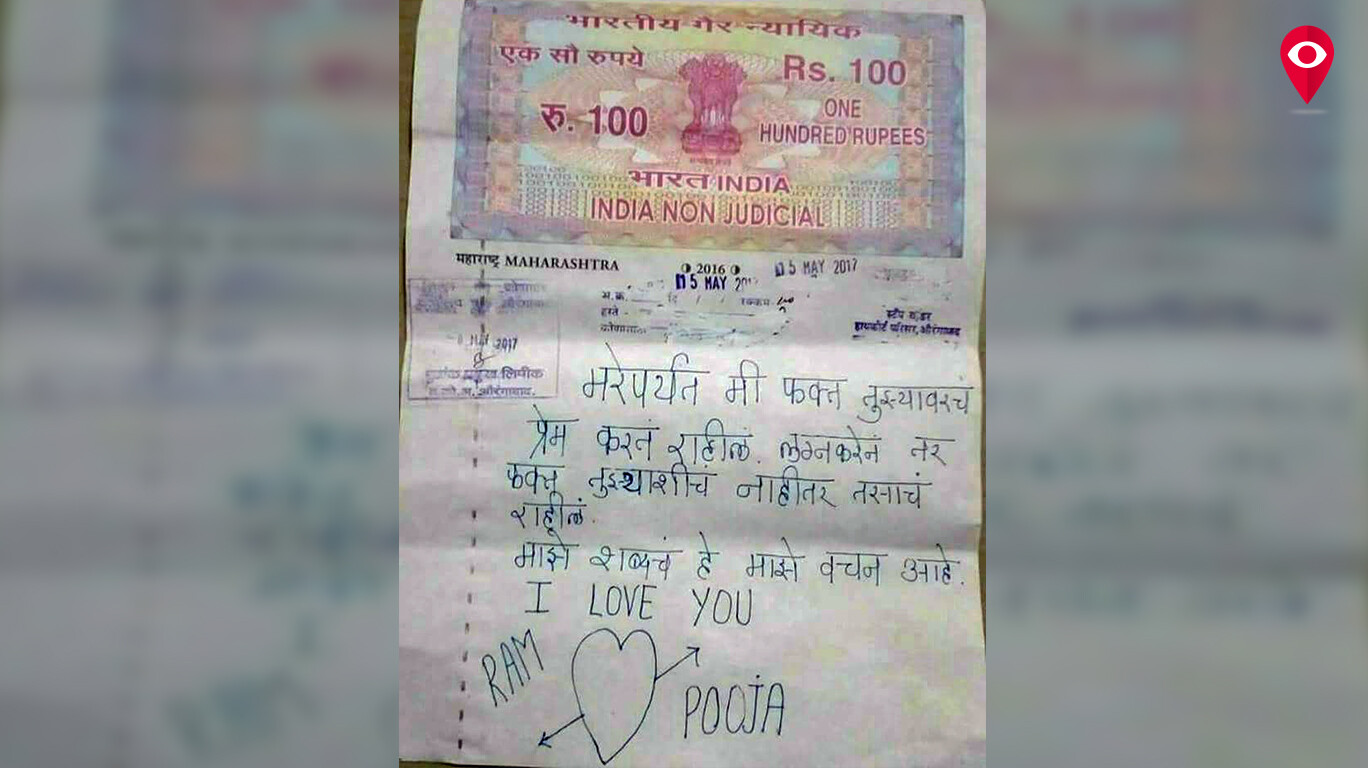 भारतीय गैर न्यायिक
एक सौ रुपये
Rs. 100
रु. 100
ONE
HUNDRED RUPEES
भारत INDIA
INDIA NON JUDICIAL
महाराष्ट्र MAHARASHTRA
2016
05 MAY 2017
05 MAY
अ.क्र. दि / / रक्कम
हस्ते
MAY 2017
लिपीक
औरंगाबाद.
हायकोर्ट परिसर, औरंगाबाद
मरेपर्यंत मी फक्त तुझ्यावरचं
प्रेम करतं राहीलं. लग्नकरेनं तर
फक्त तुझ्याशीचं नाहीतर तसाचं
राहीलं.
माझे शब्दचं हे माझे वचन आहे.
I LOVE YOU
RAM
POOJA